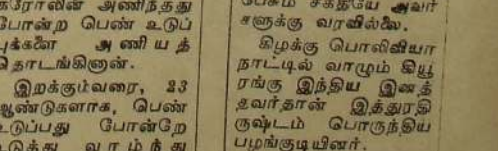 கரோலின் அணிந்தது
போன்ற பெண் உடுப்
புக்களை அணியத்
தொடங்கினான்.
இறக்கும்வரை, 23
ஆண்டுகளாக, பெண்
உடுப்பது போன்றே
உடுத்து வாழ்ந்து
பேசும் சக்தியே அவர்
களுக்கு வரவில்லை.
கிழக்கு பொலிவியா
நாட்டில் வாழும் கியூ
ரங்கு இந்திய இனத்
தவர்தான் இத்துரதி
ருஷ்டம் பொருந்திய
பழங்குடியினர்.